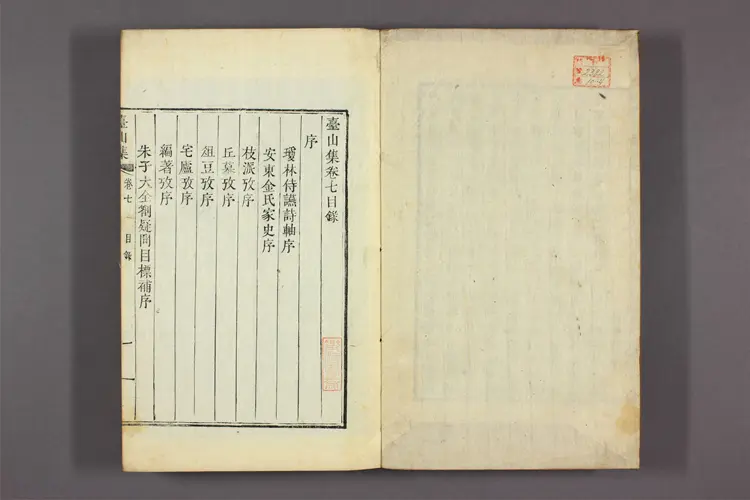 臺山集卷七目錄
序
瓊林侍讌詩軸序
安東金氏家史序
枝派攷序
丘墓攷序
俎豆攷序
宅廬攷序
編著攷序
朱子大全箚疑問目標補序
臺山集 卷七 目錄 一